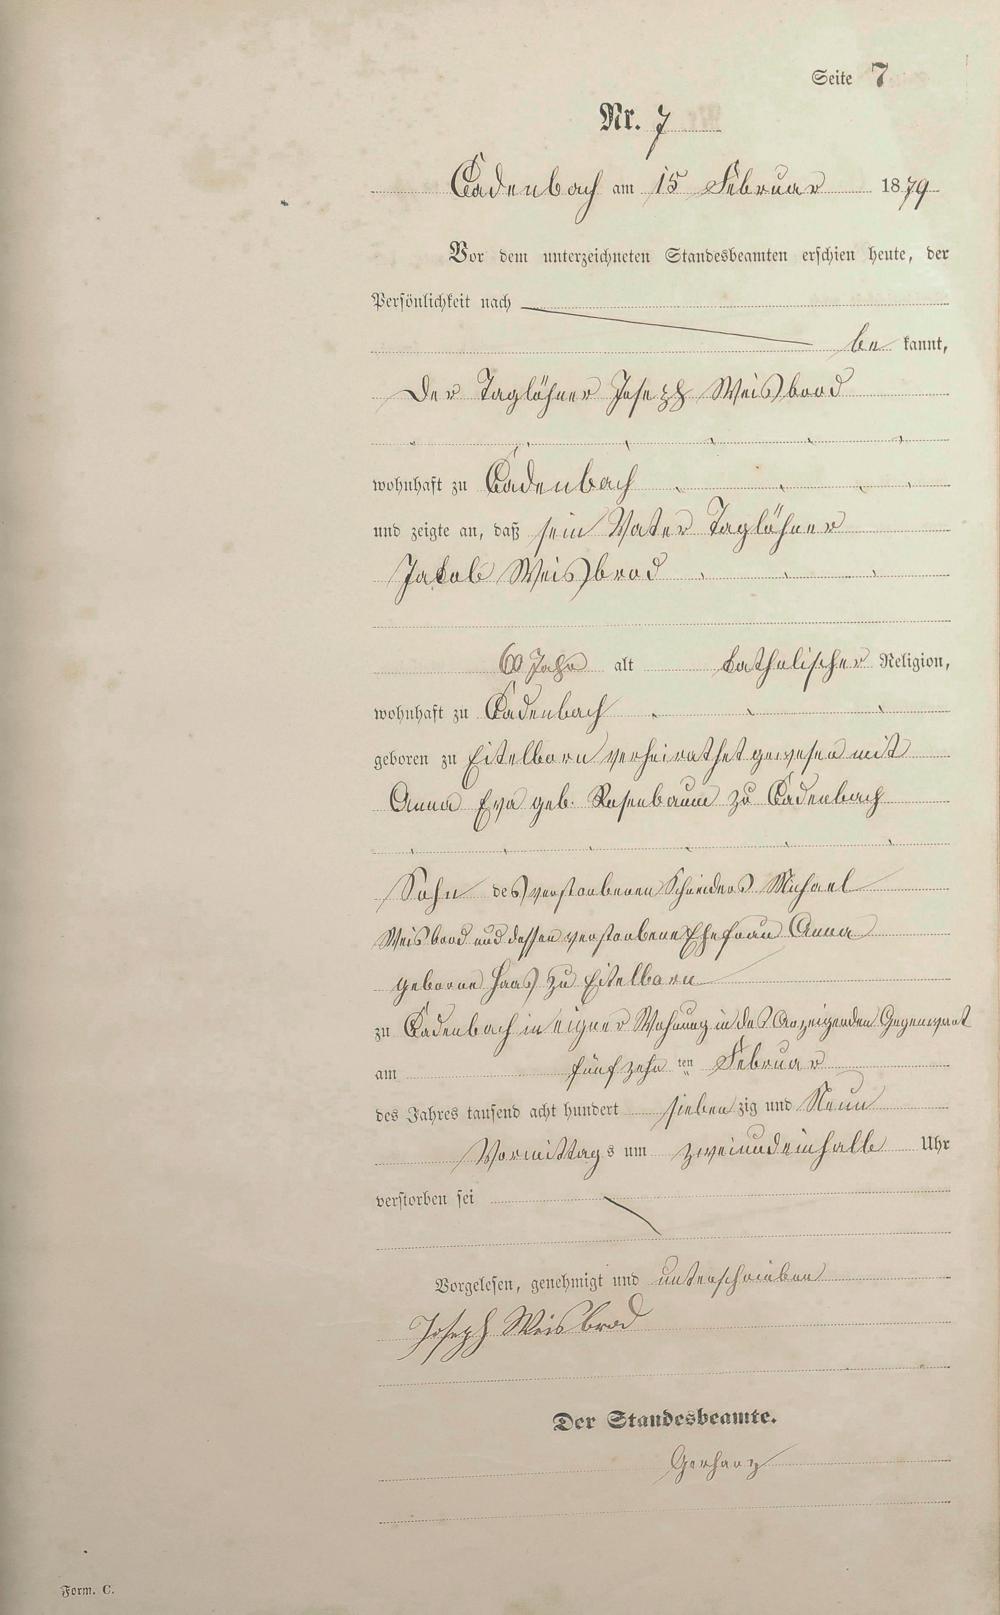 Seite 7
Nr. 7
Cadenbach am 15 Februar 1879
Vor dem unterzeichneten Standesbeamten erschien heute, der
Persönlichkeit nach
be kannt,
Der Taglöhner Joseph Weisbrod
wohnhaft zu Cadenbach
und zeigte an, daß sein Vater Taglöhner
Jakob Weisbrod
60 Jahr alt katholischer Religion,
wohnhaft zu Cadenbach
geboren zu Eitelborn verheirathet gewesen mit
Anna Eva geb. Rosenbaum zu Cadenbach
Sohn des verstorbenen Schneiders Michael
Weisbrod und dessen verstorbene Ehefrau Anna
geborne Haas zu Eitelborn
zu Cadenbach in eigner Wohnung in des Anzeigenden Gegenwart
am fünfzehn ten Februar
des Jahres tausend acht hundert siebenzig und Neun
Vormittags um zweiundeinhalb Uhr
verstorben sei
Vorgelesen, genehmigt und unterschrieben
Joseph Weisbrod
Der Standesbeamte.
Gerharz
Form. C.